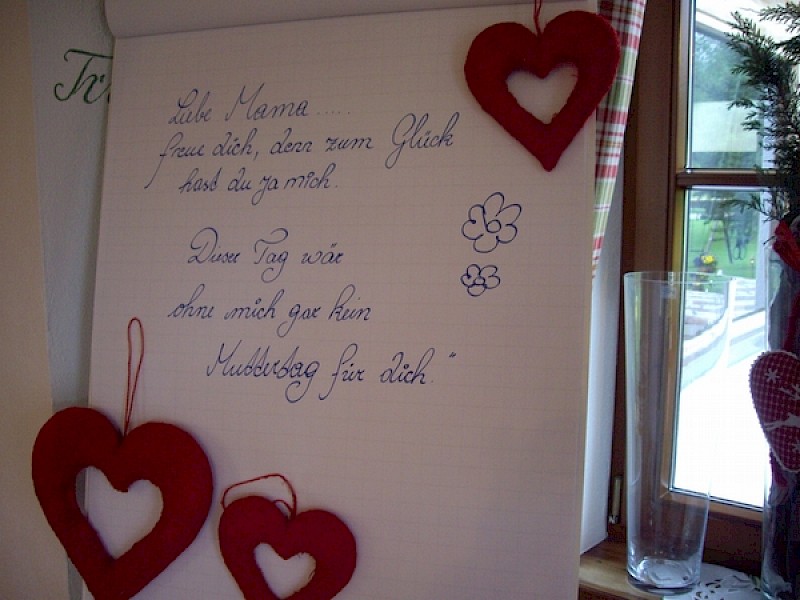 Liebe Mama.....
freue dich, denn zum Glück
hast du ja mich.
Dieser Tag wär
ohne mich gar kein
Muttertag für dich."